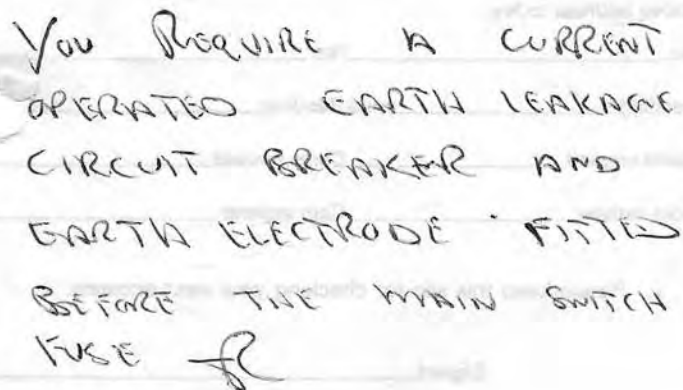 You REQUIRE A CURRENT
OPERATED EARTH LEAKAGE
CIRCUIT BREAKER AND
EARTH ELECTRODE FITTED
BEFORE THE MAIN SWITCH
FUSE